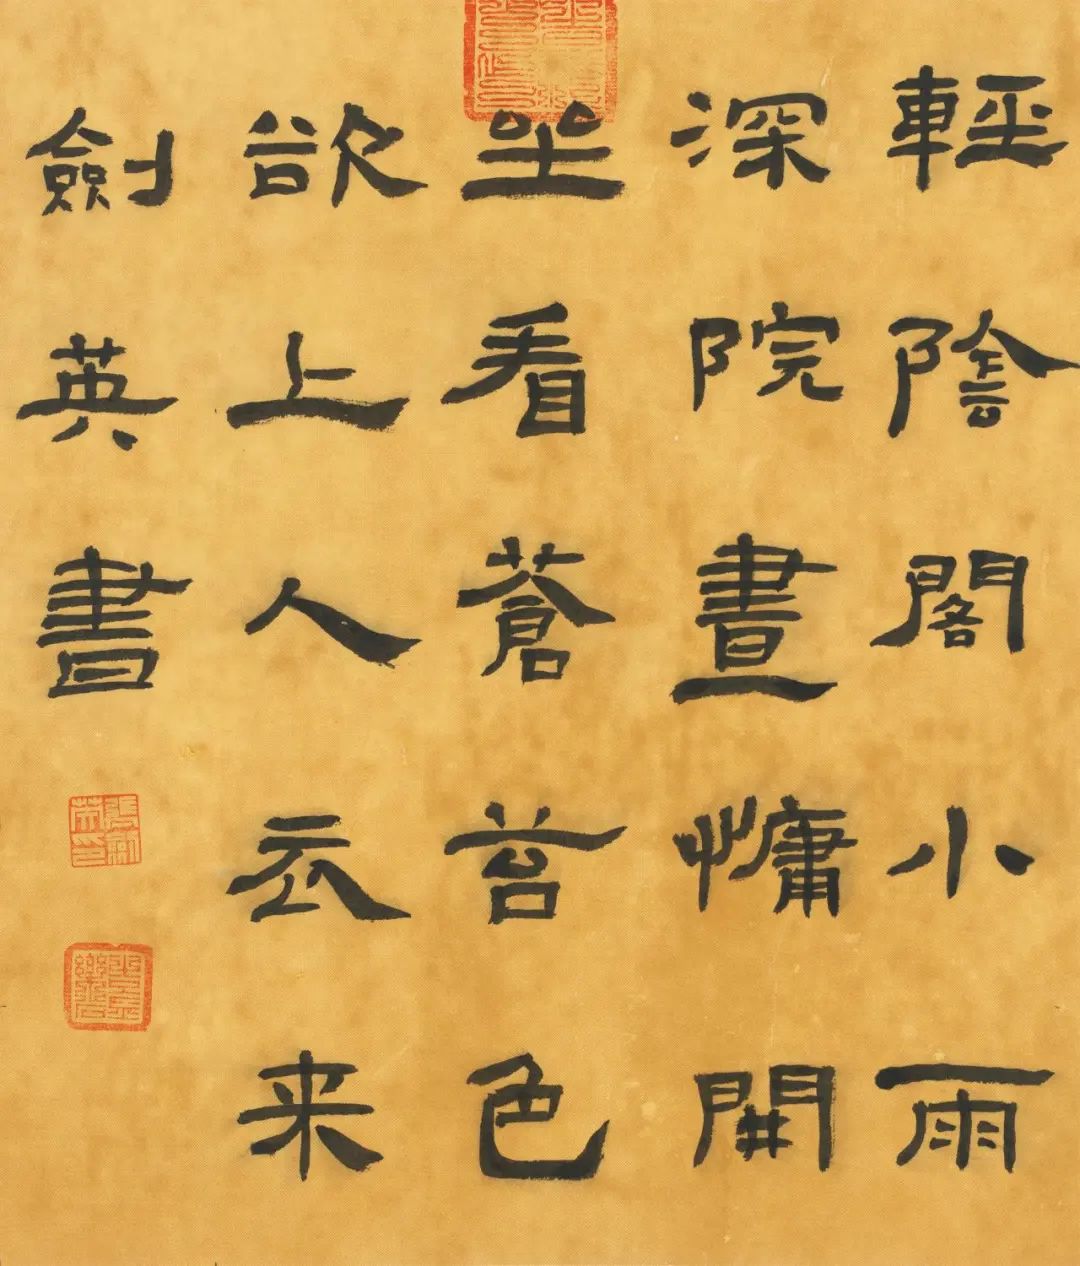 輕陰閣小雨
深院晝慵開
坐看蒼苔色
欲上人衣来
劍英書